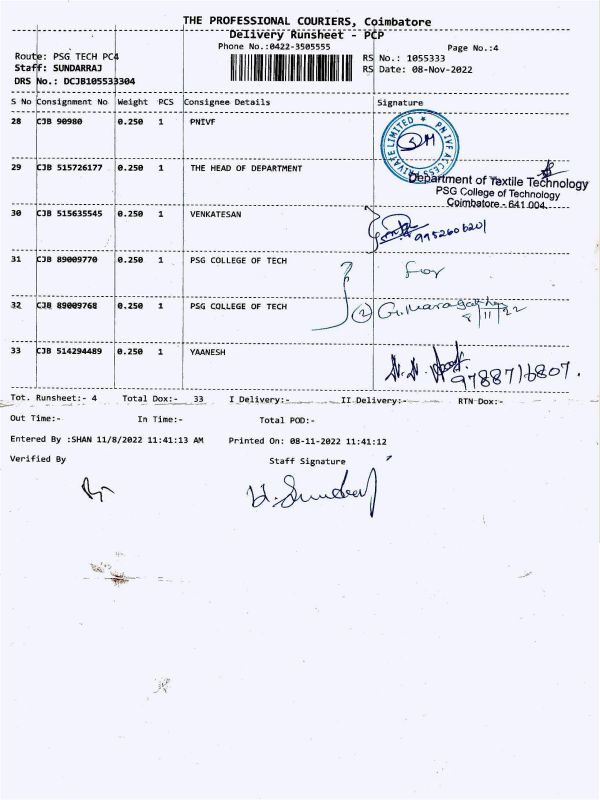 THE PROFESSIONAL COURIERS, Coimbatore
Delivery Runsheet - PCP
Phone No.:0422-3505555
Page No.:4
Route: PSG TECH PC4
RS No.: 1055333
Staff: SUNDARRAJ
RS Date: 08-Nov-2022
DRS No.: DCJB105533304
S No Consignment No Weight PCS Consignee Details Signature
28 CJB 90980 0.250 1 PNIVF
PN IVF ACCESS PRIVATE LIMITED
29 CJB 515726177 0.250 1 THE HEAD OF DEPARTMENT
Department of Textile Technology
PSG College of Technology
Coimbatore - 641 004.
30 CJB 515635545 0.250 1 VENKATESAN
9952606201
31 CJB 89009770 0.250 1 PSG COLLEGE OF TECH
For
32 CJB 89009768 0.250 1 PSG COLLEGE OF TECH
2
8/11/22
33 CJB 514294489 0.250 1 YAANESH
9788716807.
Tot. Runsheet:- 4 Total Dox:- 33 I Delivery:- II Delivery:- RTN Dox:-
Out Time:- In Time:- Total POD:-
Entered By :SHAN 11/8/2022 11:41:13 AM Printed On: 08-11-2022 11:41:12
Verified By Staff Signature